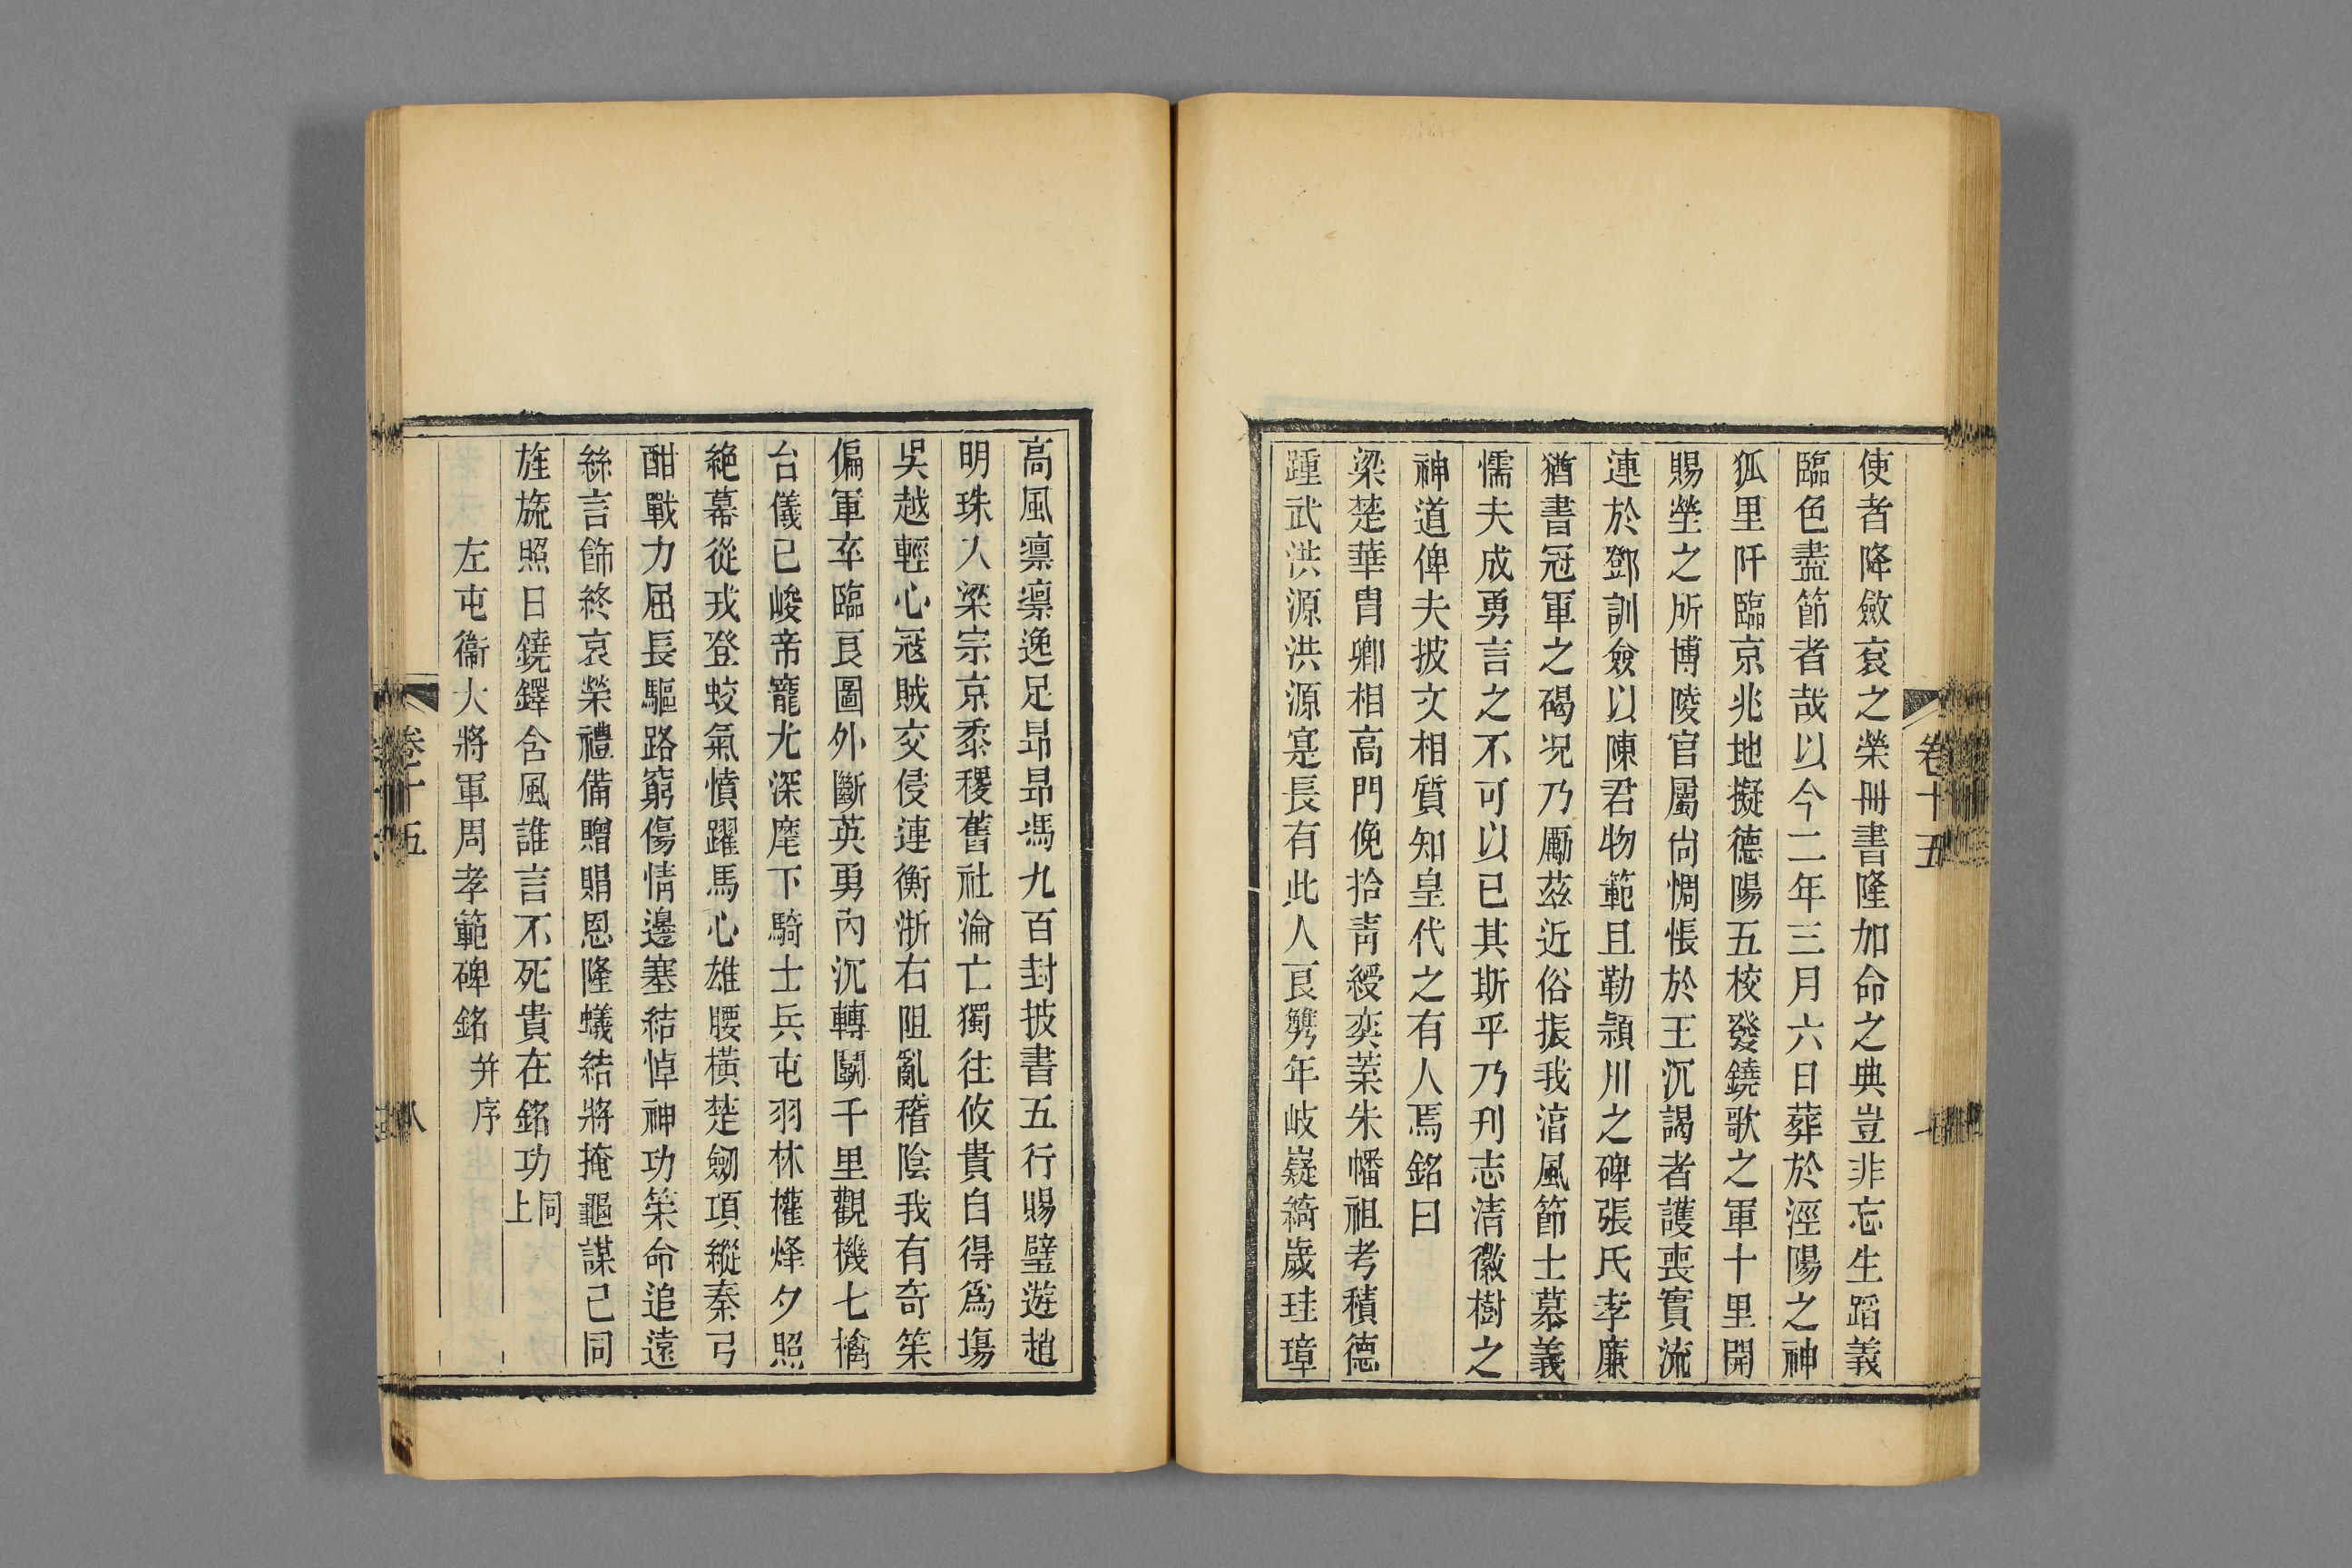 使者降斂衮之榮冊書隆加命之典豈非忘生蹈義
臨色盡節者哉以今二年三月六日葬於涇陽之神
狐里阡臨京兆地擬德陽五校發鐃歌之軍十里開
賜塋之所博陵官屬尙惆悵於王沉謁者護喪實流
連於鄧訓僉以陳君物範且勒潁川之碑張氏孝廉
猶書冠軍之碣况乃勵茲近俗振我湻風節士慕義
懦夫成勇言之不可以已其斯乎乃刋志淸徽樹之
神道俾夫披文相質知皇代之有人焉銘曰
梁楚華胄卿相高門俛拾靑綬奕葉朱幡祖考積德
踵武洪源洪源寔長有此人良髣年岐嶷綺歲珪璋
卷十五
高風凜凜逸足昂昂馮九百封披書五行賜璧遊趙
明珠入梁宗京黍稷舊社淪亡獨往攸貴自得爲塲
吳越輕心寇賊交侵連衡浙右阻亂稽陰我有奇筞
偏軍卒臨良圖外斷英勇內沉轉鬬千里觀機七擒
台儀已峻帝寵尤深麾下騎士兵屯羽林權烽夕照
絶幕從戎登蛟氣憤躍馬心雄腰橫楚劒項縱秦弓
酣戰力屈長驅路窮傷情邊塞結悼神功筞命追遠
絲言飾終哀榮禮備贈賵恩隆蟻結將掩龜謀已同
旌旐照日鐃鐸含風誰言不死貴在銘功同上
左屯衞大將軍周孝範碑銘并序
卷十五
八